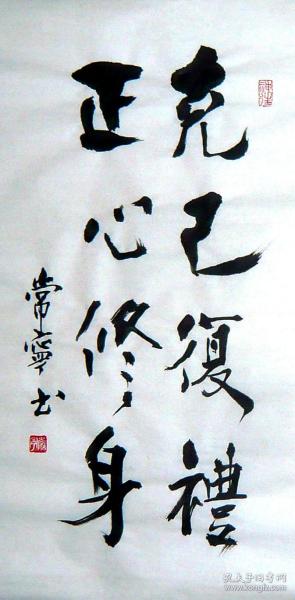 克己復禮
正心修身
常寧书
孔夫子旧书网
www.kongfz.com